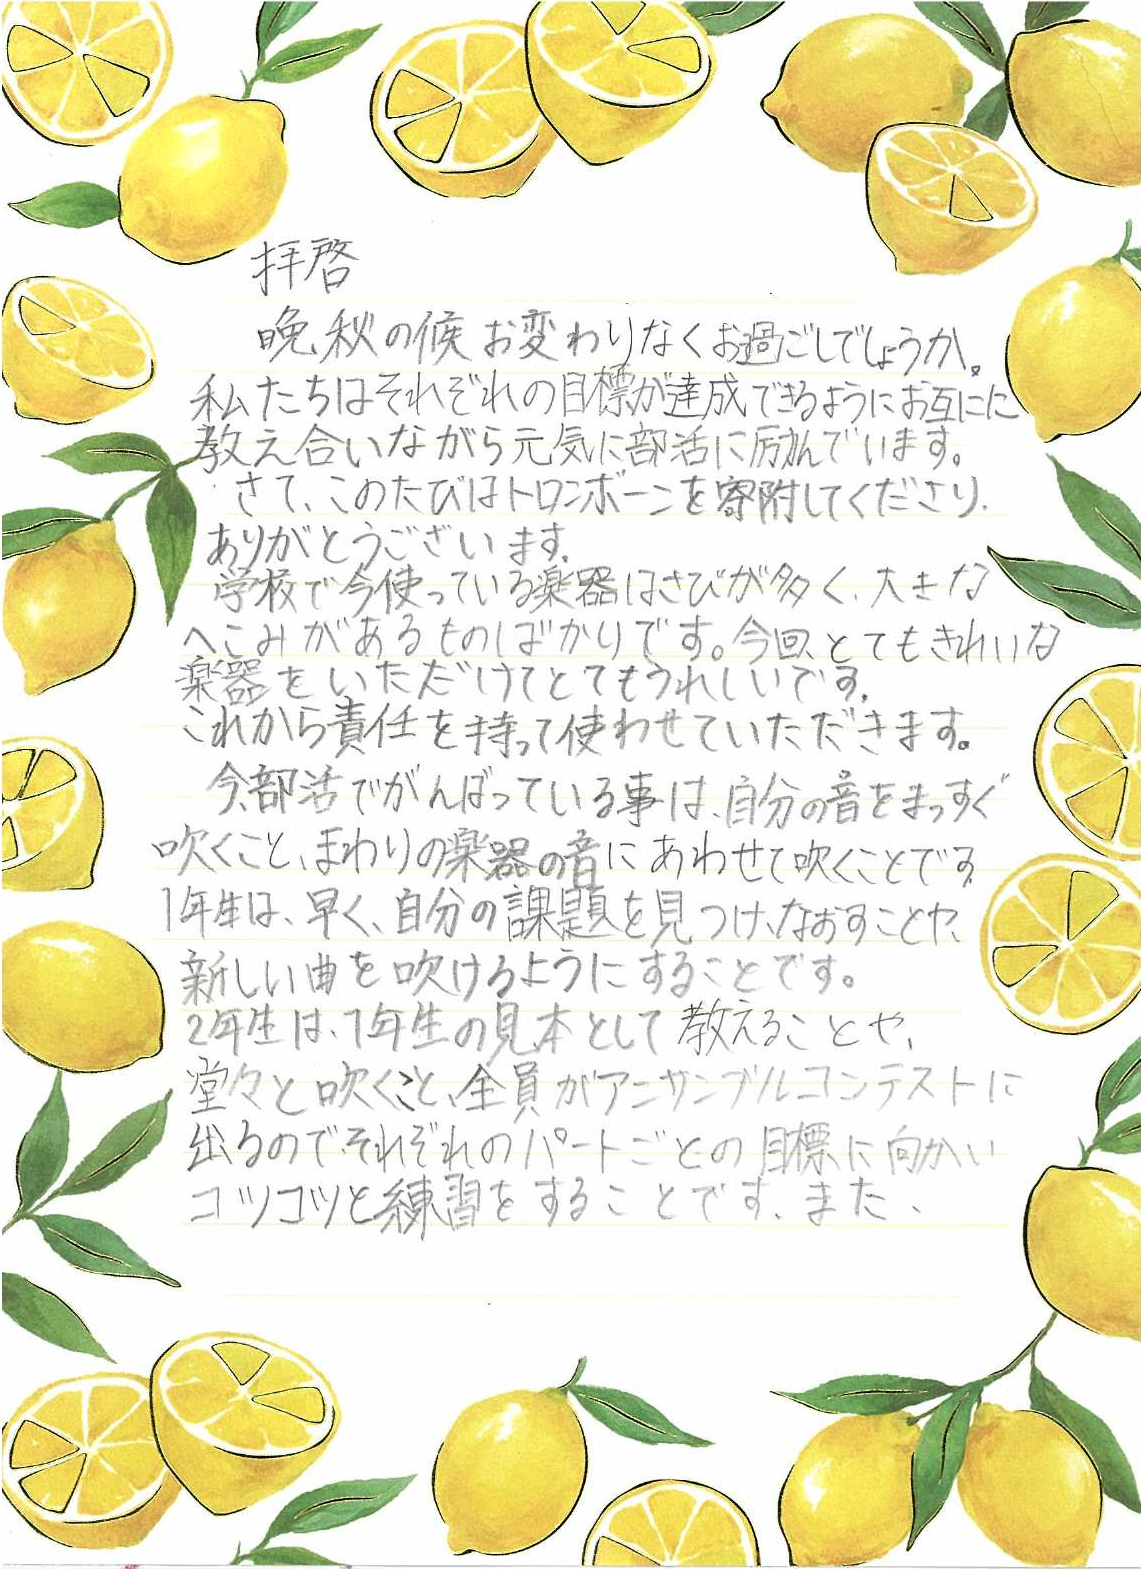 拝啓
晩秋の候お変わりなくお過ごしでしょうか。
私たちはそれぞれの目標が達成できるようにお互いに
教え合いながら元気に部活に励んでいます。
さて、このたびはトロンボーンを寄附してくださり、
ありがとうございます。
学校で今使っている楽器はさびが多く、大きな
へこみがあるものばかりです。今回、とてもきれいな
楽器をいただけてとてもうれしいです。
これから責任を持って使わせていただきます。
今、部活でがんばっている事は、自分の音をまっすぐ
吹くこと、まわりの楽器の音にあわせて吹くことです。
1年生は、早く、自分の課題を見つけ、なおすことや、
新しい曲を吹けるようにすることです。
2年生は、1年生の見本として教えることや、
堂々と吹くこと、全員がアンサンブルコンテストに
出るので、それぞれのパートごとの目標に向かい
コツコツと練習をすることです。また、